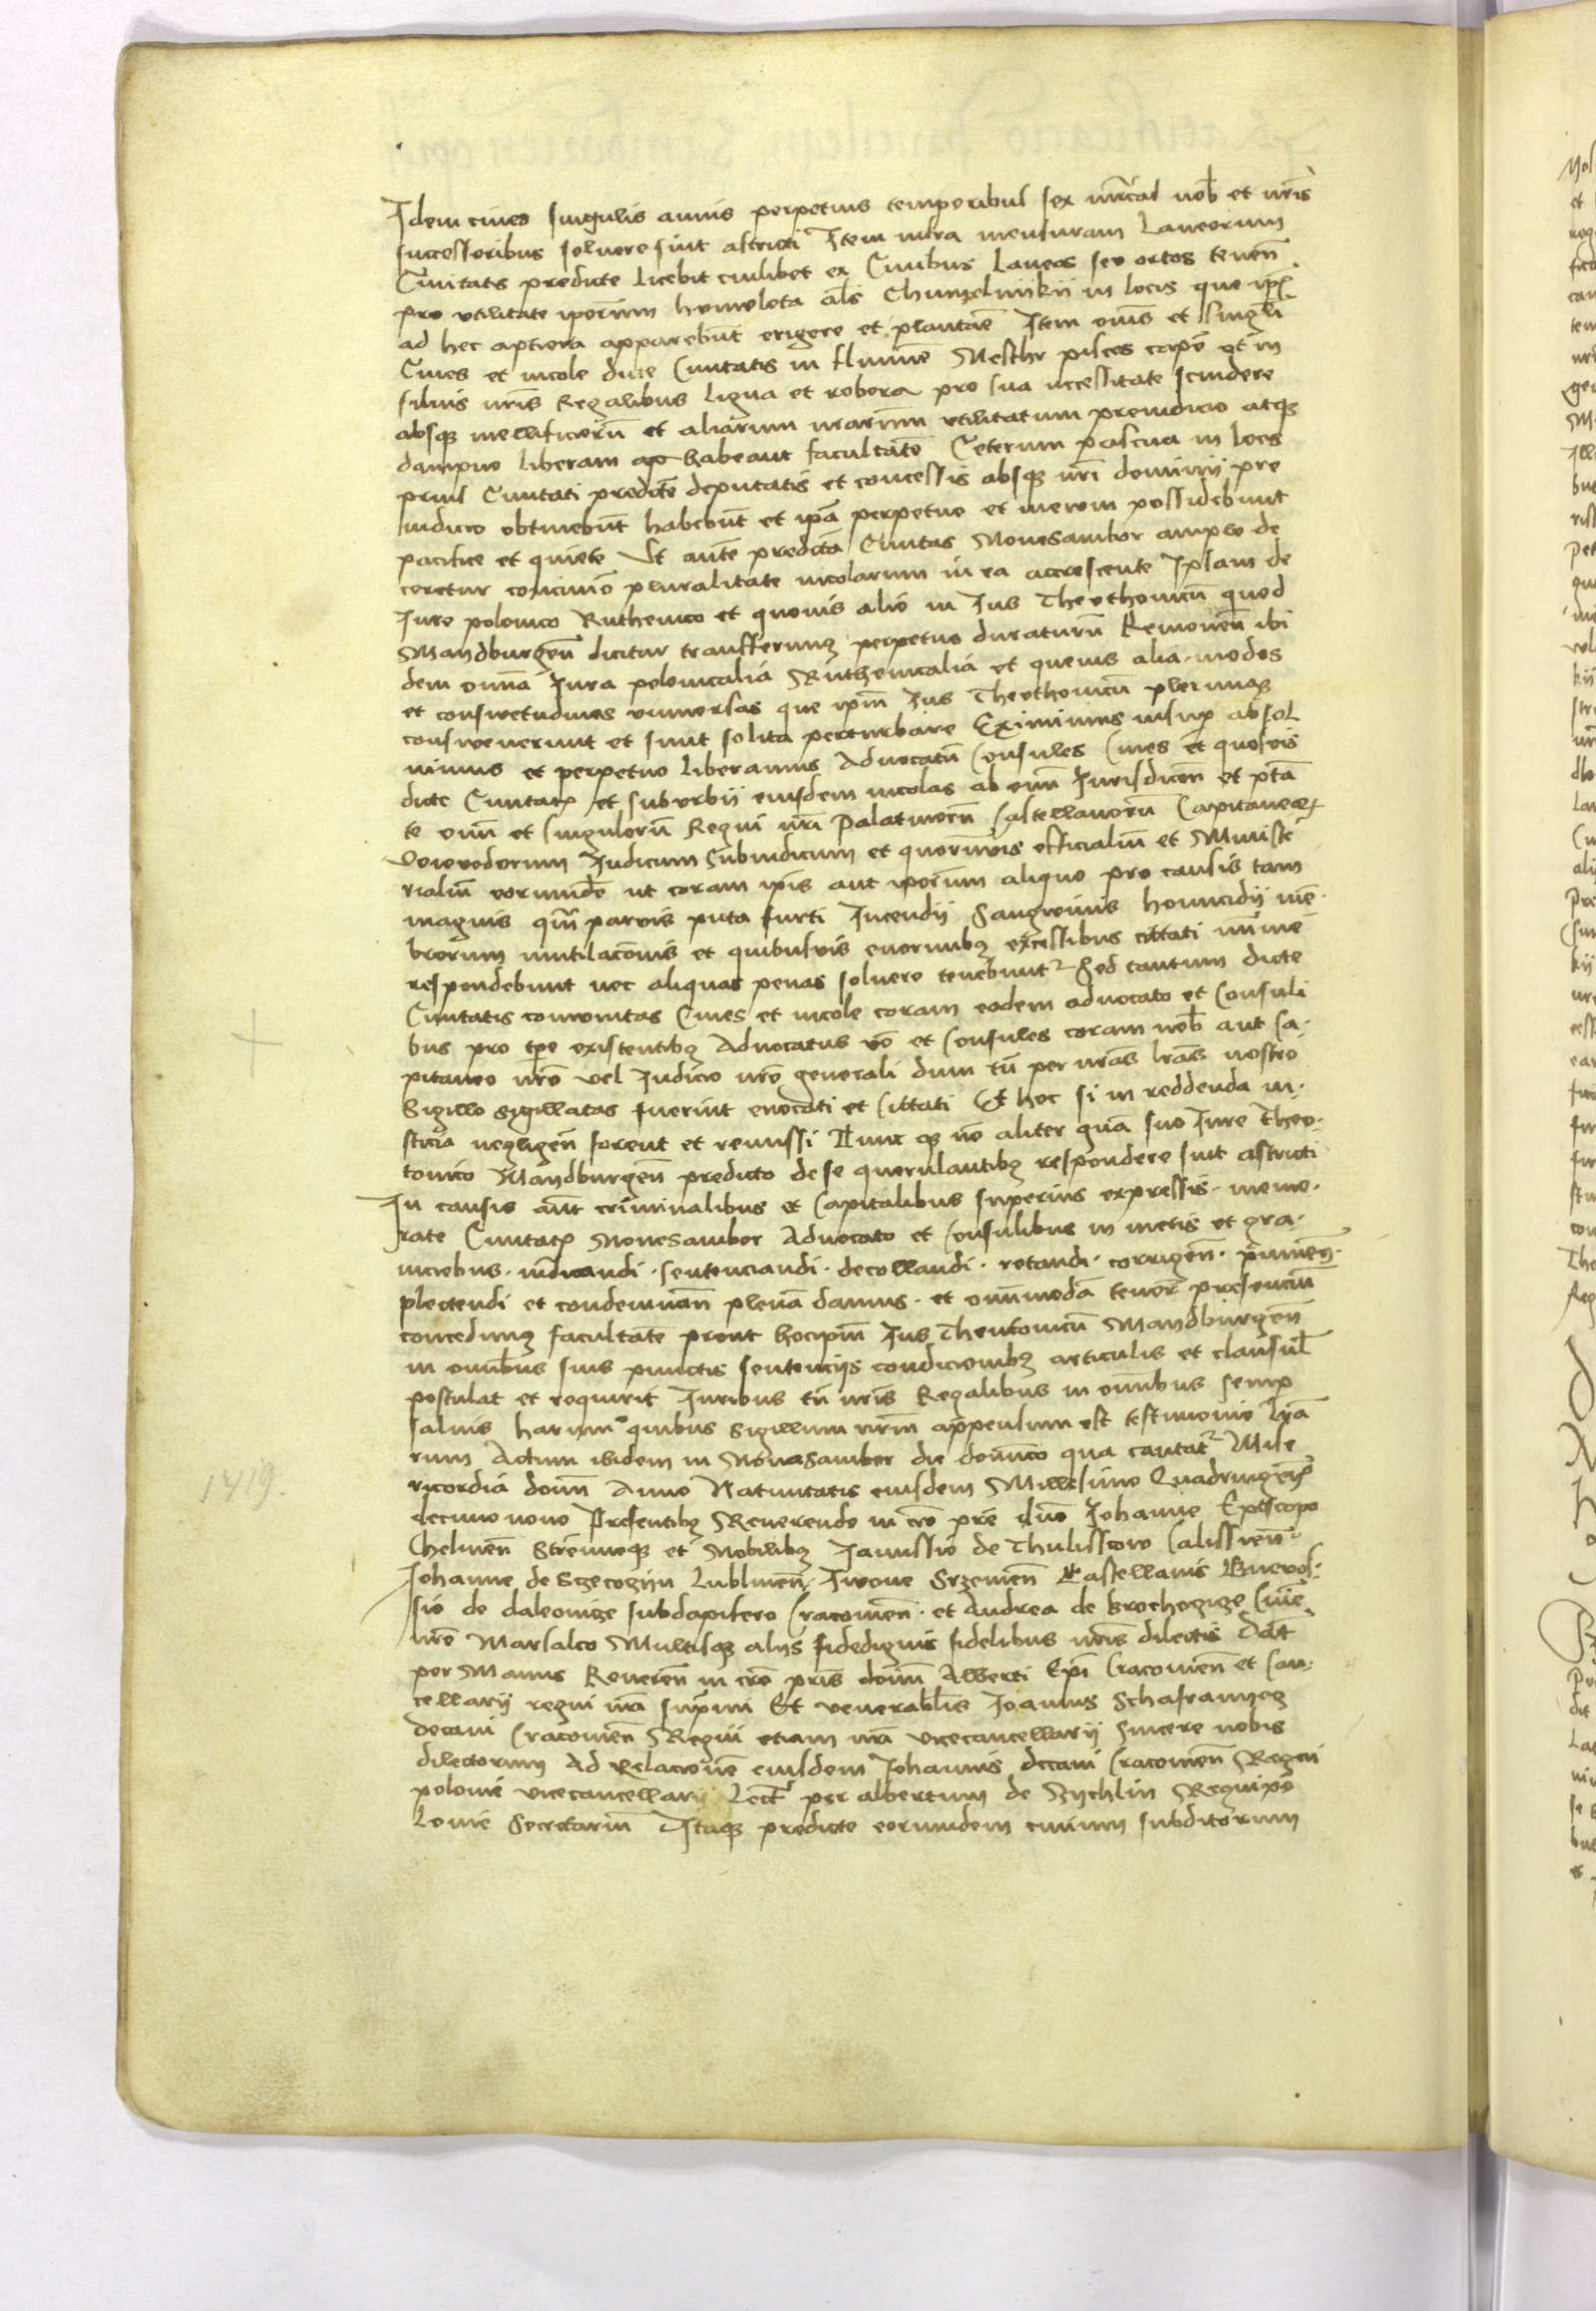 Idem cives singulis annis perpetuis temporibus sex mrcas nob et nris
successoribus solvere sint astricti Item infra mensuram Laneorum
Civitatis predicte licebit cuilibet ex Civibus Laneos seu ortos tenen
pro utilitate iporum humuleta als Chmyelnikii in locis que ips
ad hec aptiora apparebunt erigere et plantare Item omnes et singuli
Cives et incole dicte Civitatis in flumine Nesthr pisces capere et in
silvis nris Regalibus ligna et robora pro sua necessitate scindere
absque mellificiorum et aliarum nrarum utilitatum preiudicio atque
dampno liberam habeant facultatem Ceterum pascua in locis
prius Civitati predicte deputatis et concessis absque nri dominii pre
iudicio obtinebunt habebunt et ipa perpetuo et in evum possidebunt
pacifice et quiete Ut autem predicta Civitas Novesambor amplo de
coretur concivio pluralitate incolarum in ea accrescente Ipsam de
Iure polonico Ruthenico et quovis alio in Ius Theuthonicum quod
Mandburgen dicitur transferimus perpetuo duraturum Removen ibi
dem omnia Iura polonicalia Ruthenicalia et quevis alia modos
et consuetudines universas que ipm Ius Theuthonicum plerumque
consueverunt et sunt solita perturbare Eximimus insup absol
vimus et perpetuo liberamus Advocatum Consules Cives et quosvis
dicte Civitatis et suburbii eiusdem incolas ab omni Iurisdicion et pta
te omnium et singulorum Regni nri Palatinorum Castellanorum Capitaneorum
Woievodorum Iudicum Subiudicum et quorumvis officialium et Ministe
rialium eorumdem ut coram ipis aut iporum aliquo pro causis tam
magnis qm parvis puta furti Incendii Sanguinis homicidii mem
brorum mutilaconis et quibusvis enormibus excessibus cittati minime
respondebunt nec aliquas penas solvere tenebuntur Sed tantum dicte
Civitatis comunitas Cives et incole coram eodem advocato et Consuli
bus pro tpe existentibus Advocatus vo et Consules coram nob aut Ca
pitaneo nro vel Iudicio nro generali dum tn per nras lras nostro
Sigillo sigillatas fuerint evocati et Cittati Et hoc si in reddenda iu
sticia negligen forent et remissi Tunc que no aliter quam suo Iure Theo
tonico Mandburgen predicto de se querulantibus respondere sint astricti
In causis aut criminalibus et Capitalibus superius expressis memo
rate Civitatis Novesambor Advocato et Consulibus in metis et gra
niciebus iudicandi sentenciandi decollandi rotandi corrigen punien
plectendi et condemnan plenam damus et omnimodam tenore presencium
concedimus facultatem prout hoc ipm Ius Theutonicum Mandburgen
in omnibus suis punctis sentenciis condicionibus articulis et clausul
postulat et requirit Iuribus tn nris Regalibus in omnibus semp
salvis harum quibus Sigillum nrm appensum est testimonio lra
rum Actum ibidem in Novasambor die dominico qua cantatur Mise
ricordia domini Anno Nativitatis eiusdem Millesimo Quadringen
decimo nono Presentibus Reverendo in cro pre duo Johanne Episcopo
Chelmen Strenuisque et Nobilibus Janussio de Thulisscow Calissien
Johanne de Sczecoczin Lublinen Iwone Srzemen Castellanis
sio de daleouicze subdapifero Cracovien et Andrea de Brochoczicze Curie
nre Marsalco Multisque aliis fidedignis fidelibus nris dilectis Dat
per Manus Reveren in cro pris domini Alberti Epi Cracovien et Can
cellarii regni nri supmi Et venerabilis Joannis Schafraniecz
decani Cracovien Regni etiam nri vicecancellarii sincere nobis
dilectorum Ad Relacionem eiusdem Johannis decani Cracovien Regni
polonie vicecancellarii Lect per albertum de Zychlin Regni po
lonie Secretarium Itaque predicte eorumdem civium subditorum
1419.